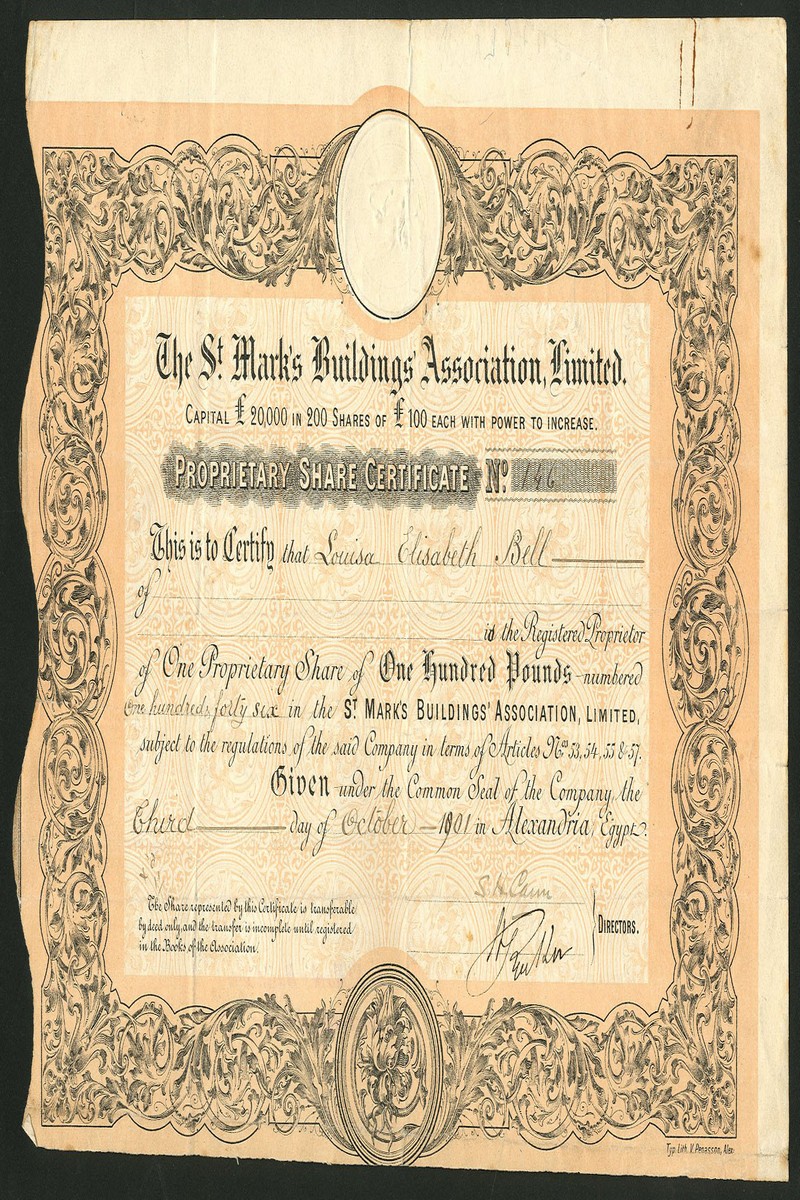 The St. Mark's Buildings' Association, Limited.
CAPITAL £ 20,000 IN 200 SHARES OF £ 100 EACH WITH POWER TO INCREASE.
PROPRIETARY SHARE CERTIFICATE No. 146
This is to Certify that Louisa Elisabeth Bell
of
is the Registered Proprietor
of One Proprietary Share of One Hundred Pounds numbered
One hundreds forty six in the ST. MARK'S BUILDINGS' ASSOCIATION, LIMITED,
subject to the regulations of the said Company in terms of Articles Nos. 53, 54, 55 & 57.
Given under the Common Seal of the Company, the
Third day of October 1901 in Alexandria, Egypt.
The Share represented by this Certificate is transferable
by deed only, and the transfer is incomplete until registered
in the Books of the Association.
DIRECTORS.
Typ. Lith. V. Penasson, Alex